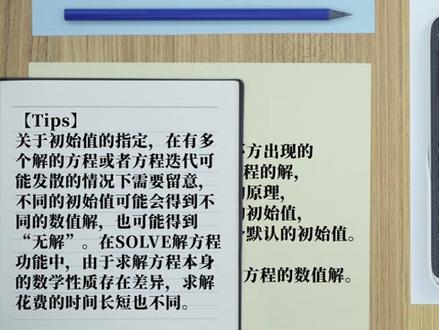 【Tips】
关于初始值的指定，在有多
个解的方程或者方程迭代可
能发散的情况下需要留意，
不同的初始值可能会得到不
同的数值解，也可能得到
“无解”。在SOLVE解方程
功能中，由于求解方程本身
的数学性质存在差异，求解
花费的时间长短也不同。
方出现的
程的解，
原理，
初始值，
默认的初始值。
方程的数值解。